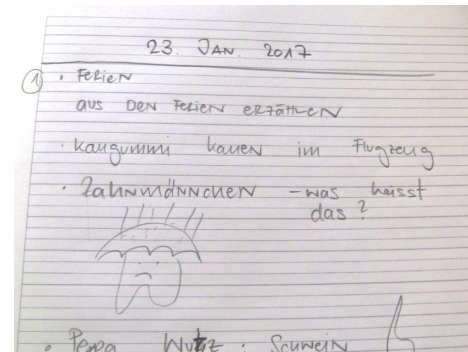 23. JAN. 2017
① • FERIEN
AUS DEN FERIEN ERZÄHLEN
• Kaugummi kauen im Flugzeug
• Zahnmännchen – was heisst
das?
• Peppa Wutz : Schwein